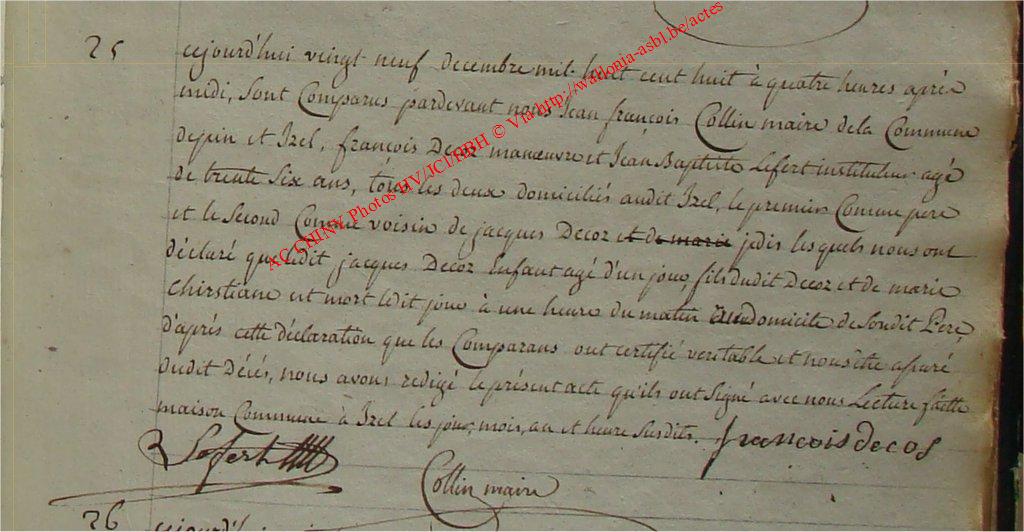 25
cejourd'hui vingt neuf decembre mil huit cent huit à quatre heures après
midi, sont Comparus pardevant nous Jean françois Collin maire de la Commune
depin et Izel, françois Decoz manœuvre et Jean Baptiste Lefert instituteur agé
de trente Six ans, tous les deux domiciliés audit Izel, le premier Comme pere
et le Second Comme voisin de jacques Decoz et de marie jdis lesquels nous ont
déclaré que ledit jacques Decoz Enfant agé d'un jour, fils dudit Decoz et de marie
Chirstiane est mort ledit jour à une heure du matin au domicile de Sondit Pere,
d'après cette déclaration que les Comparans ont certifié veritable et nous être assuré
dudit Décés, nous avons redigé le présent acte qu'ils ont Signé avec nous Lecture faitte
maison Commune à Izel les jour, mois, an et heure Susdits.
françois decos
Lefert
Collin maire
26
cejourd'
AC CHINY Photos HV/JCI/RBH © Via http://wallonia-asbl.be/actes